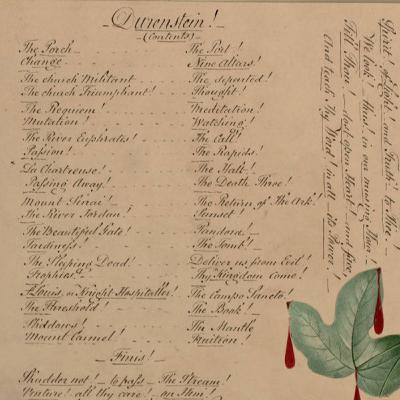 Durenstein!
(Contents)
The Porch The Port!
Change Nine Altars!
The church Militant The departed!
The church Triumphant! Thought!
The Requiem! Meditation!
Mutation! Watching!
The River Euphrates! The Call!
Passion! The Rapids.
La Chartreuse! The Halt!
Passing Away! The Death Throe!
Mount Sinai! The Return of The Ark!
The River Jordan! Sunset!
The Beautiful Gate! Pandora!
Tardiness! The Tomb!
The Sleeping Dead! Deliver us from Evil!
Trophies! Thy Kingdom Come!
St Louis, or Knight Hospitaller! The Campo Santo!
The Threshold! The Book!
Shaddows! The Mantle
Mount Carmel! Fruition!
Finis!
Shudder not! to pass The Stream!
Venture! all thy care! on Him!
Spirit! of Light! and Truth! to Thee!
We look! thus! in our musing Hour!
Till Thou! dost open Heart and free,
And teach Thy Word! in all its Power.